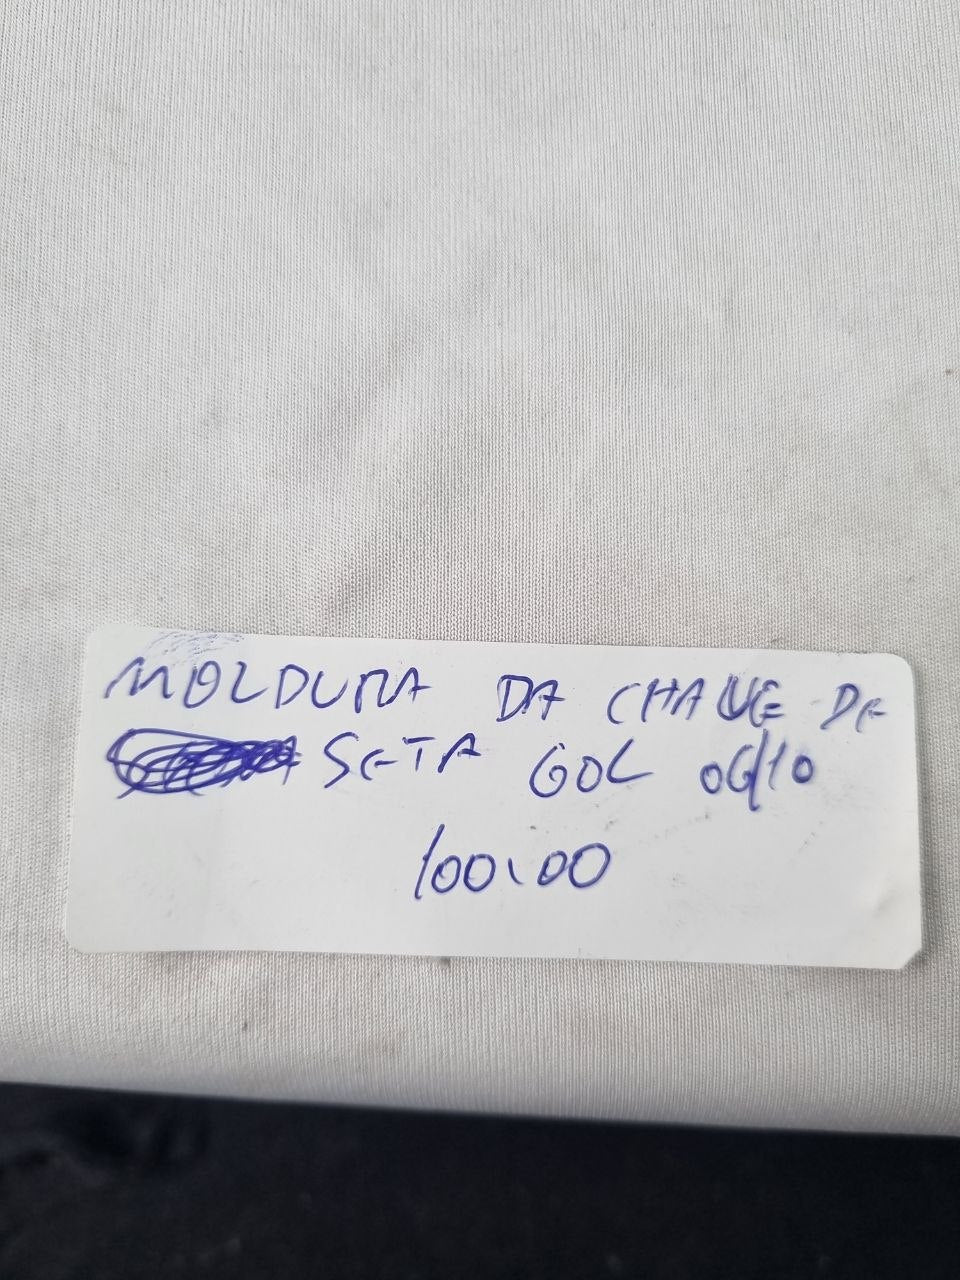 MOLDURA DA CHAVE DE
SETA GOL 06/10
100,00